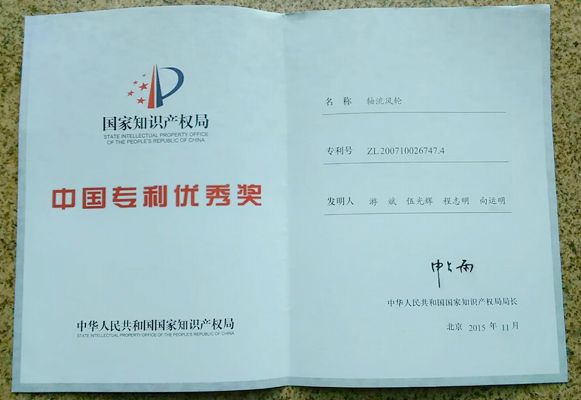 国家知识产权局
STATE INTELLECTUAL PROPERTY OFFICE
OF THE PEOPLE'S REPUBLIC OF CHINA
中国专利优秀奖
中华人民共和国国家知识产权局
STATE INTELLECTUAL PROPERTY OFFICE OF THE PEOPLE'S REPUBLIC OF CHINA
名 称 轴流风轮
专利号 ZL200710026747.4
发明人 游 斌 伍光辉 程志明 向运明
申长雨
中华人民共和国国家知识产权局局长
北京 2015 年 11 月